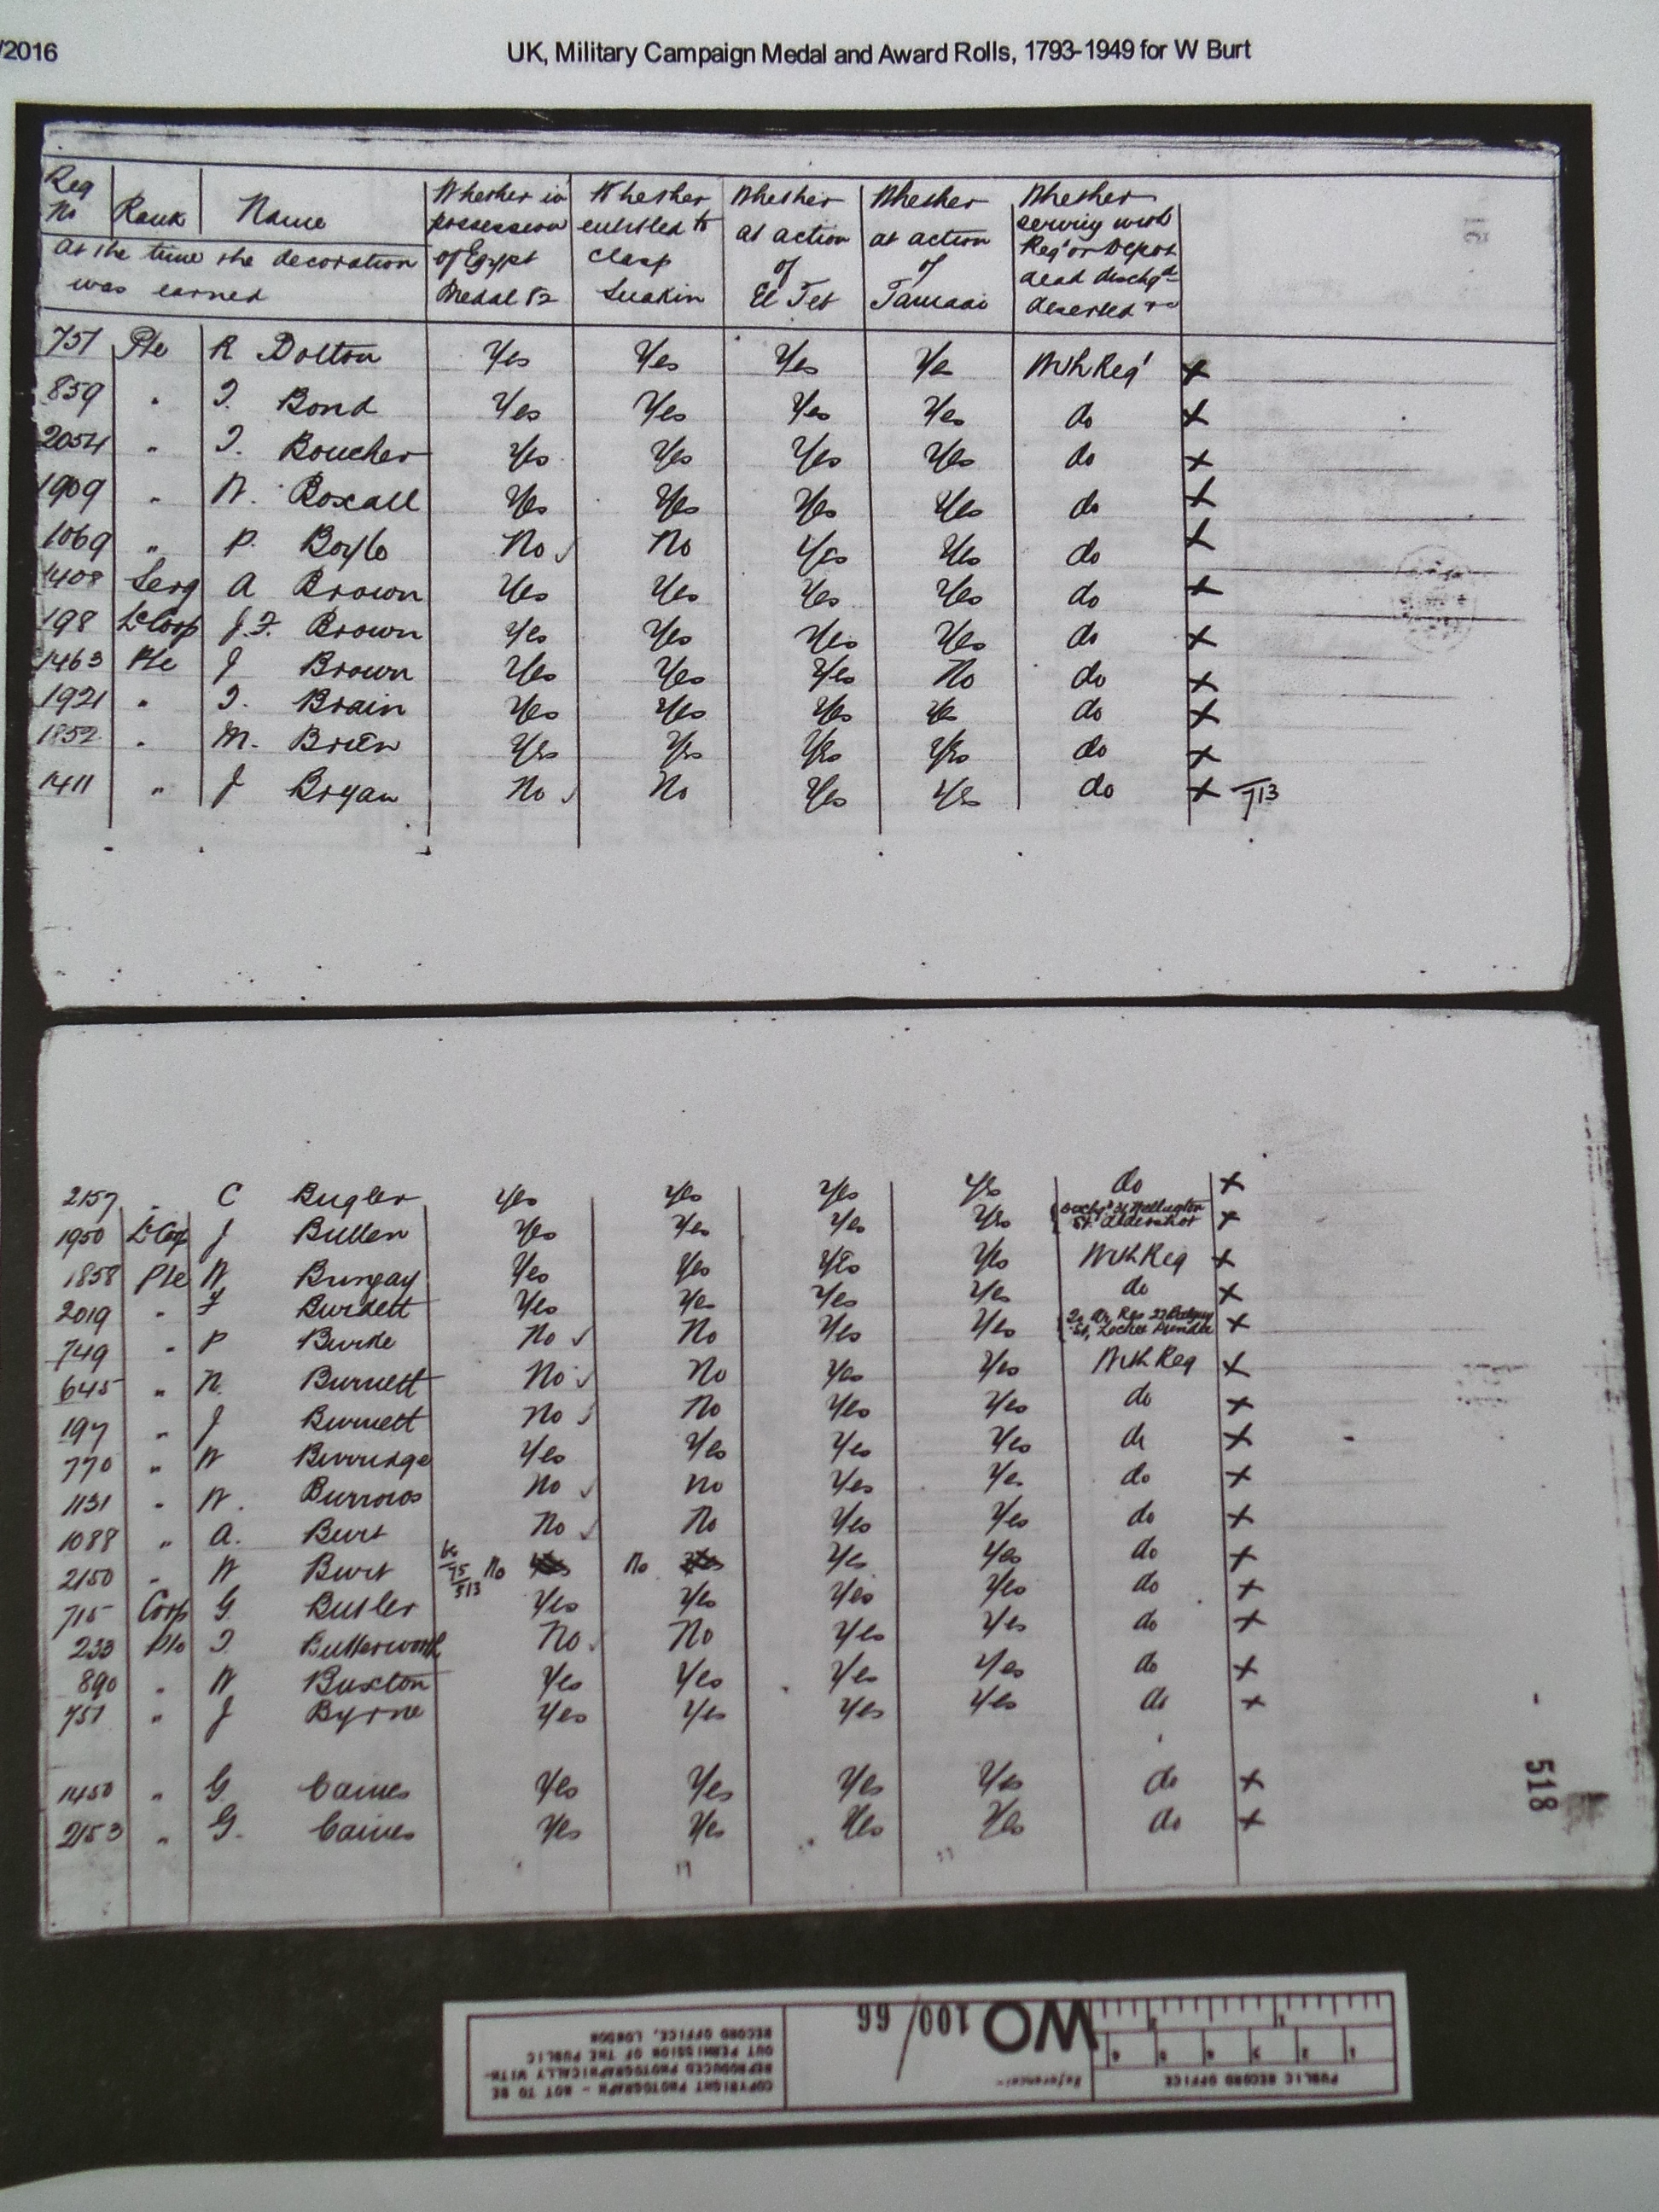 /2016
UK, Military Campaign Medal and Award Rolls, 1793-1949 for W Burt
Reg No Rank Name Whether in possession of Egypt Medal 82 Whether entitled to clasp Suakin Whether at action of El Teb Whether at action of Tamaai Whether serving with Regt or Depot dead dischgd deserted &c
At the time the decoration was earned
757 Pte R Dolton Yes Yes Yes Yes With Regt X
859 " T. Bond Yes Yes Yes Yes do X
2054 " T. Boucher Yes Yes Yes Yes do X
1909 " W. Boxall Yes Yes Yes Yes do X
1069 " P. Boyle No ✓ No Yes Yes do X
1408 Serg A Brown Yes Yes Yes Yes do X
198 Lce Corp J.F. Brown Yes Yes Yes Yes do X
1463 Pte J Brown Yes Yes Yes No do X
1921 " T. Brain Yes Yes Yes Yes do X
1852 " M. Brien Yes Yes Yes Yes do X
1411 " J Bryan No ✓ No Yes Yes do X 713
2157 " C Bugler Yes Yes Yes Yes do X
1950 Lce Corp J Bullen Yes Yes Yes Yes Dischd 31 Wellington St. Aldershot X
1858 Pte W Bungay Yes Yes Yes Yes With Reg X
2019 " F Burdett Yes Yes Yes Yes do X
749 " P Burke No ✓ No Yes Yes St, Lochee Dundee X
645 " N. Burnett No ✓ No Yes Yes With Reg X
197 " J Burnett No ✓ No Yes Yes do X
770 " W Burridge Yes Yes Yes Yes do X
1131 " W. Burrows No ✓ No Yes Yes do X
1088 " A. Burt No ✓ No Yes Yes do X
2150 " W Burt 75/513 No No Yes Yes do X
715 Corp G. Butler Yes Yes Yes Yes do X
233 Pte T. Butterworth No No Yes Yes do X
890 " W Buxton Yes Yes Yes Yes do X
751 " J Byrne Yes Yes Yes Yes do X
1450 " G. Caines Yes Yes Yes Yes do X
2153 " G. Caines Yes Yes Yes Yes do X
518
PUBLIC RECORD OFFICE
1 2 3 4 5 6
Reference:-
WO 100/66
COPYRIGHT PHOTOGRAPH - NOT TO BE
REPRODUCED PHOTOGRAPHICALLY WITH-
OUT PERMISSION OF THE PUBLIC
RECORD OFFICE, LONDON